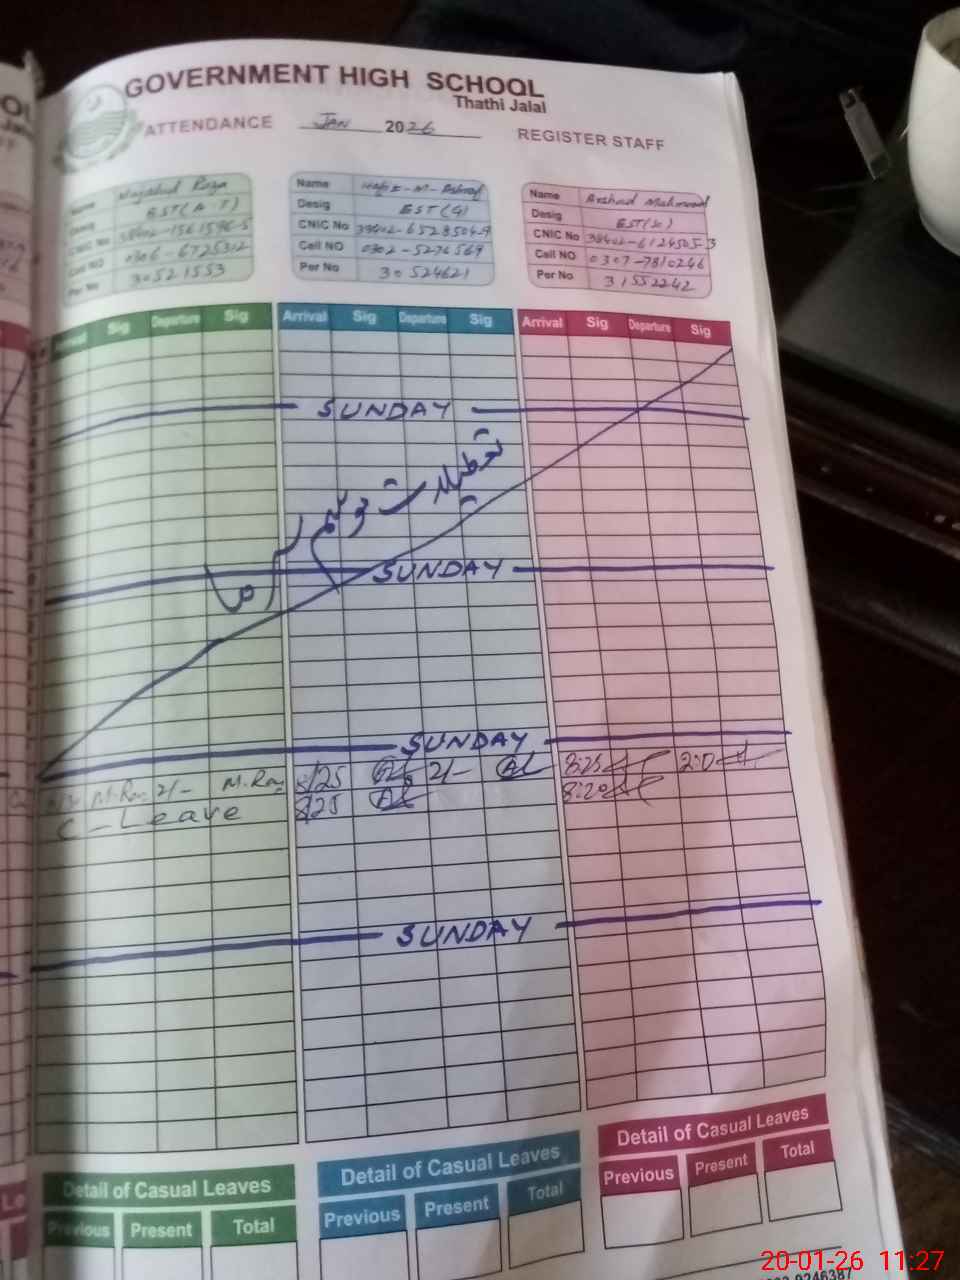 GOVERNMENT HIGH SCHOOL
Thathi Jalal
ATTENDANCE JAN 2026 REGISTER STAFF
Name Raza
EST(A T)
CNIC No
Cell NO 0306-6725312
Per No 30521553
Name Hafiz-M-Ashraf
Desig EST(G)
CNIC No 38402-6528504-9
Cell NO 0302-5276569
Per No 30524621
Name Arshad Mahmood
Desig EST(S)
CNIC No 38402-6124505-3
Cell NO 0307-7810246
Per No 31552242
Sig Departure Sig Arrival Sig Departure Sig Arrival Sig Departure Sig
SUNDAY
تعطیلات موسم سرما
SUNDAY
SUNDAY
M.Raz 2/- M.Raz 8/25 2/- 8:25 2:0
C-Leave 8/25 8:20
SUNDAY
Detail of Casual Leaves Detail of Casual Leaves Detail of Casual Leaves
Previous Present Total Previous Present Total Previous Present Total
9246387
20-01-26 11:27